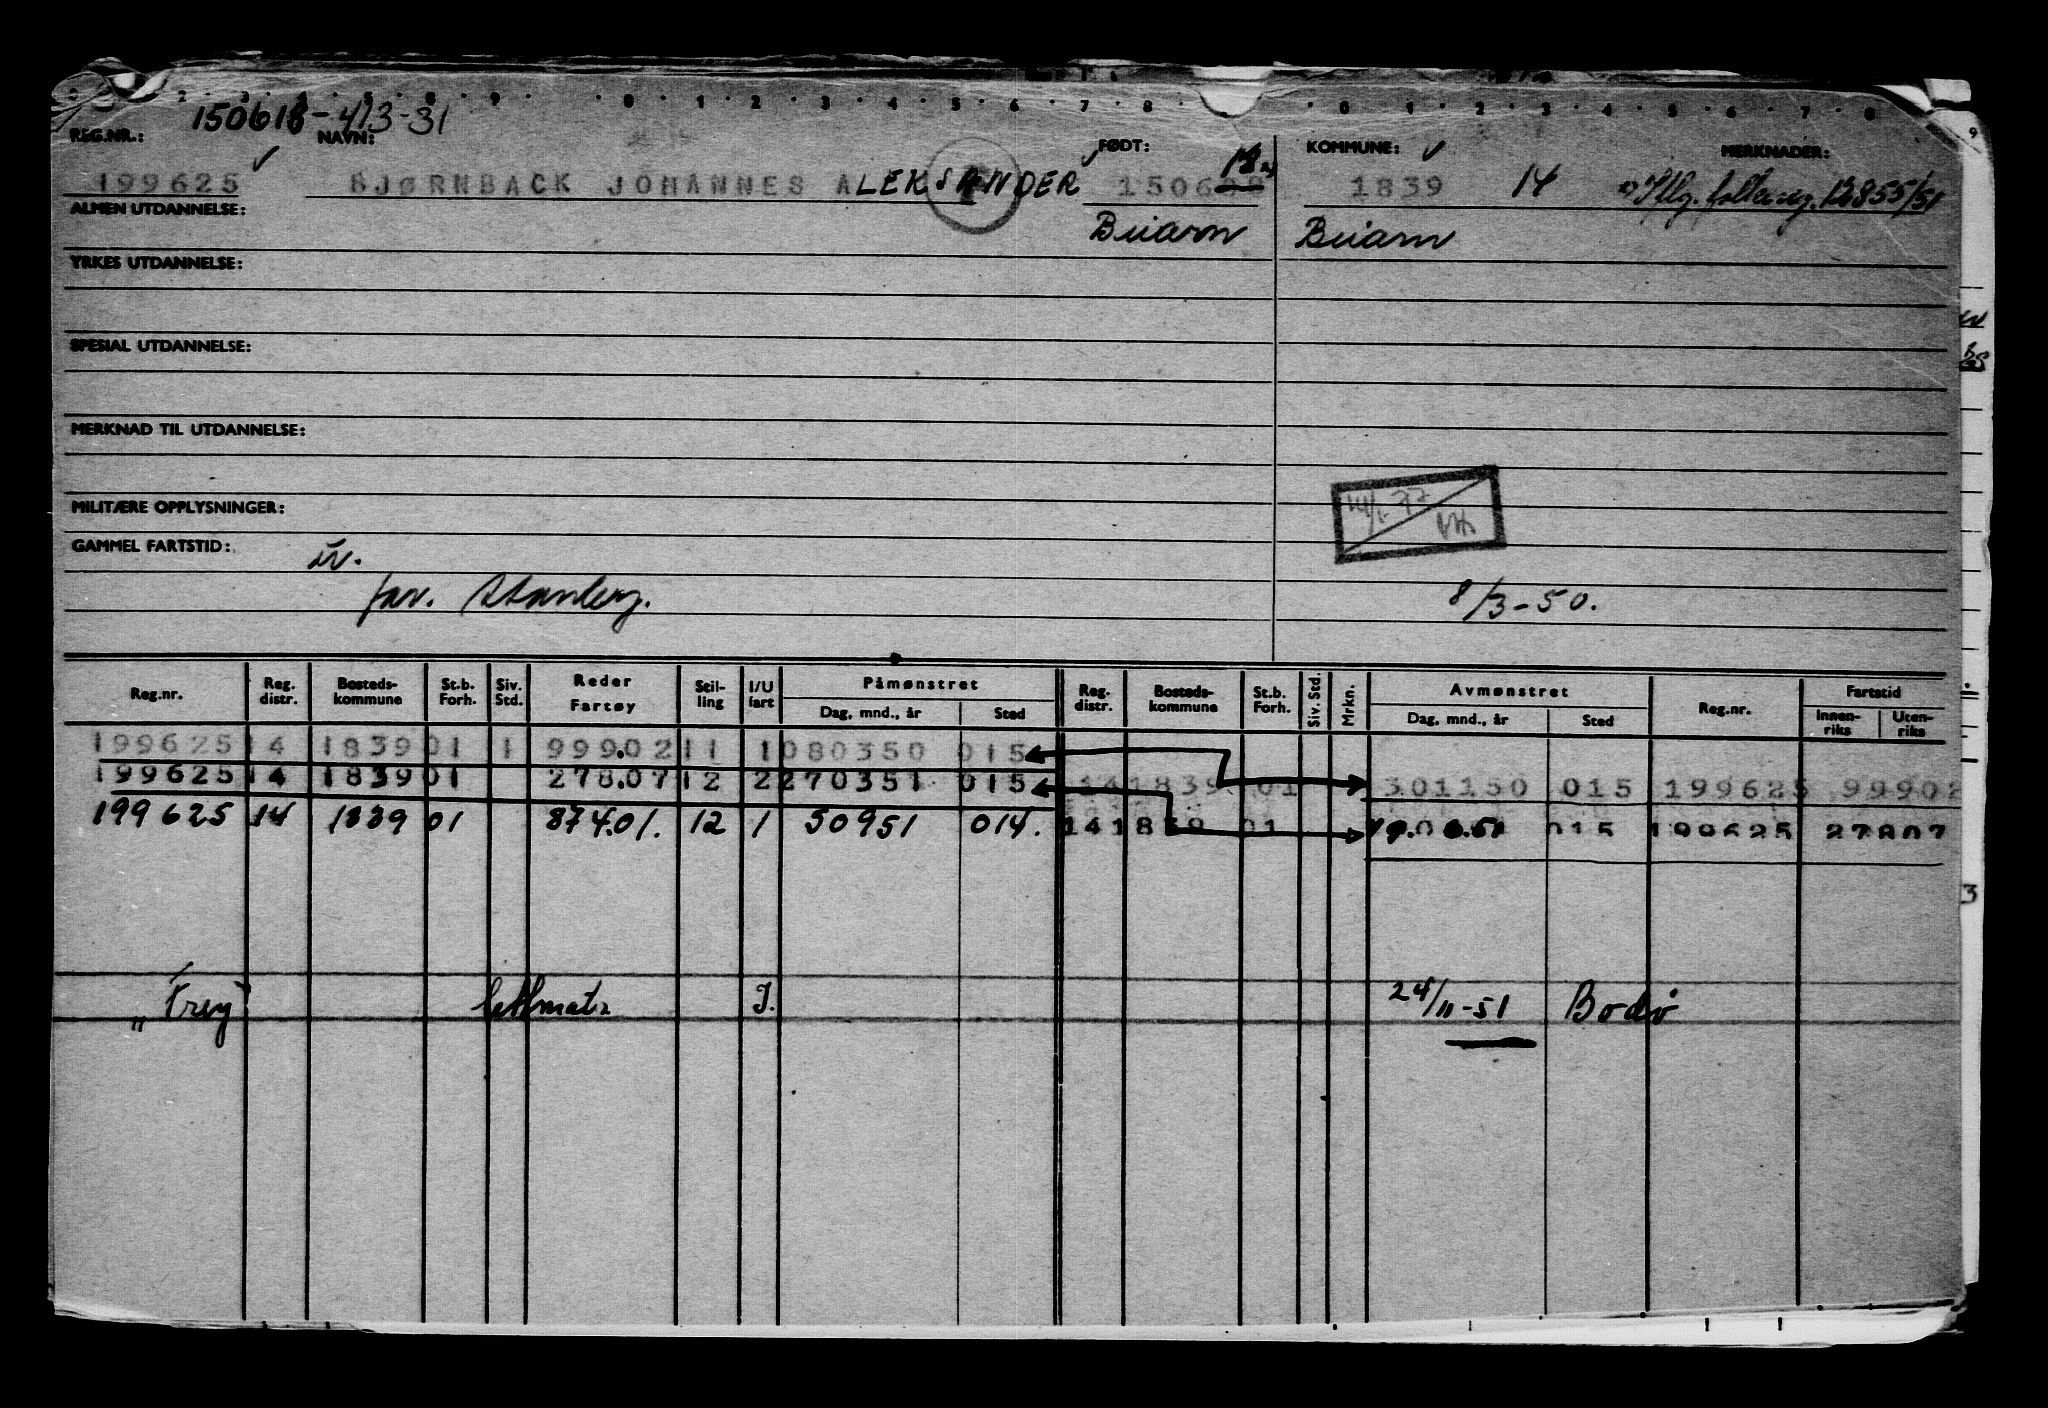 150618-413-31
REG.NR.: NAVN: FØDT: KOMMUNE: MERKNADER:
199625 BJØRNBACK JOHANNES ALEKSANDER 1506 18 1839 14 12855/51
ALMEN UTDANNELSE: Beiarn Beiarn
YRKES UTDANNELSE:
SPESIAL UTDANNELSE:
MERKNAD TIL UTDANNELSE:
MILITÆRE OPPLYSNINGER:
GAMMEL FARTSTID:
8/3-50.
Reg.nr. Reg. distr. Bosteds-kommune St.b. Forh. Siv. Std. Reder Fartøy Stil-ling I/U fart Påmønstret Dag, mnd., år Sted Reg. distr. Bosteds-kommune St.b. Forh. Siv. Std. Mrkn. Avmønstret Dag, mnd., år Sted Reg.nr. Fartstid Innen-riks Uten-riks
199625 14 1839 01 1 999.02 11 1 080350 015
199625 14 1839 01 278.07 12 2 270351 015 14 1839 01 301150 015 199625 99902
199625 14 1839 01 874.01. 12 1 50951 014. 14 1839 01 015 199625 27807
"Frey" lettmatr. I. 24/11-51 Bodø